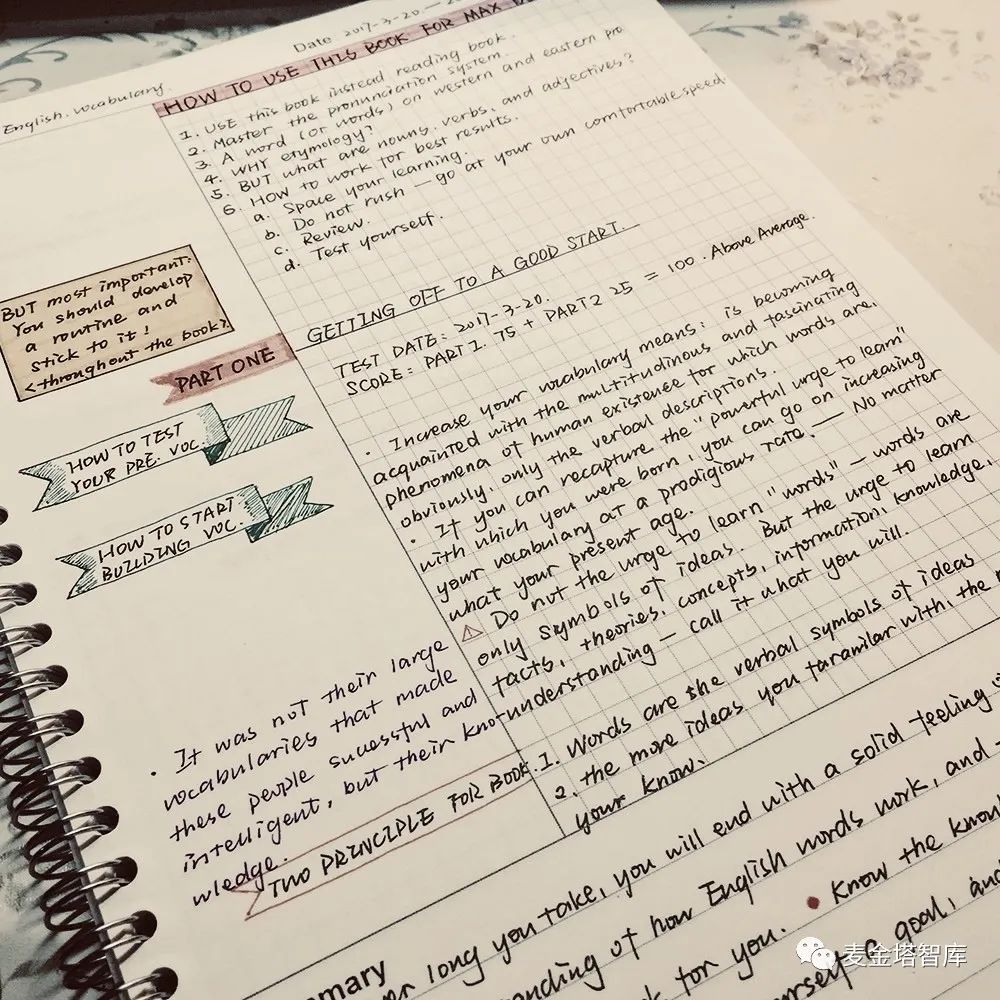 Date 2017-3-20
English. Vocabulary.
HOW TO USE THIS BOOK FOR MAX
1. USE this book instead reading book.
2. Master the pronunciation system.
3. A word (or words) on western and eastern pro
4. WHY etymology?
5. BUT what are nouns, verbs, and adjectives?
6. HOW to work for best results.
a. Space your learning.
b. Do not rush — go at your own comfortable speed.
c. Review.
d. Test yourself.
BUT most important:
You should develop
a routine and
stick to it!
<throughout the book>
PART ONE
HOW TO TEST
YOUR PRE. VOC
HOW TO START
BUILDING VOC.
GETTING OFF TO A GOOD START.
TEST DATE: 2017-3-20.
SCORE: PART 1. 75 + PART 2 25 = 100. Above Average.
• Increase your vocabulary means: is becoming
acquainted with the multitudinous and fascinating
phenomena of human existence for which words are,
obviously, only the verbal descriptions.
• If you can recapture the "powerful urge to learn"
with which you were born, you can go on increasing
your vocabulary at a prodigious rate. — No matter
what your present age.
⚠ Do not the urge to learn "words" — words are
only symbols of ideas. But the urge to learn
facts, theories, concepts, information, knowledge,
understanding — call it what you will.
• It was not their large
vocabularies that made
these people sucessful and
intelligent, but their kno-
wledge.
TWO PRINCIPLE FOR BOOK.
1. Words are the verbal symbols of ideas
2. the more ideas you faramilar with, the
your know.
mary
long you take, you will end with a solid feeling
anding of how English words work, and
k for you. • Know the know
urself a goal, and
麦金塔智库